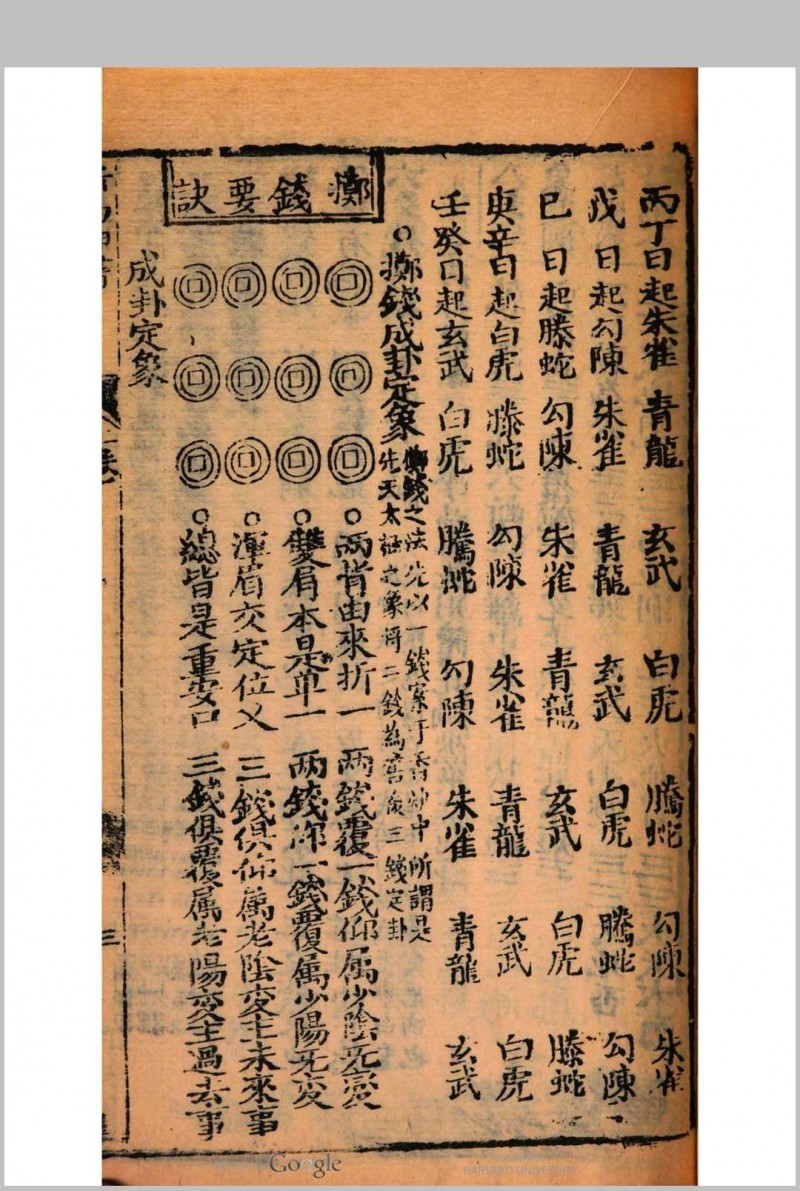 丙丁日起朱雀 青龍 玄武 白虎 騰蛇 勾陳 朱雀
戊日起勾陳 朱雀 青龍 玄武 白虎 騰蛇 勾陳
巳日起螣蛇 勾陳 朱雀 青龍 玄武 白虎 螣蛇
庚辛日起白虎 螣蛇 勾陳 朱雀 青龍 玄武 白虎
壬癸日起玄武 白虎 騰蛇 勾陳 朱雀 青龍 玄武
○擲錢成卦定象 擲錢之法先以一錢 于香炉中所謂是
先天太極之象得二錢為 後三錢定卦
擲錢要訣
○兩背由來折一 兩錢覆一錢仰属少陰无變
○雙眉本是单一 两錢仰一錢覆属少陽无变
○渾眉交定位乂 三錢俱仰属老陰变主未來事
○總皆是重安口 三錢俱覆属老陽变主過去事
成卦定象
三
Google
HARVARD UNIVERSITY